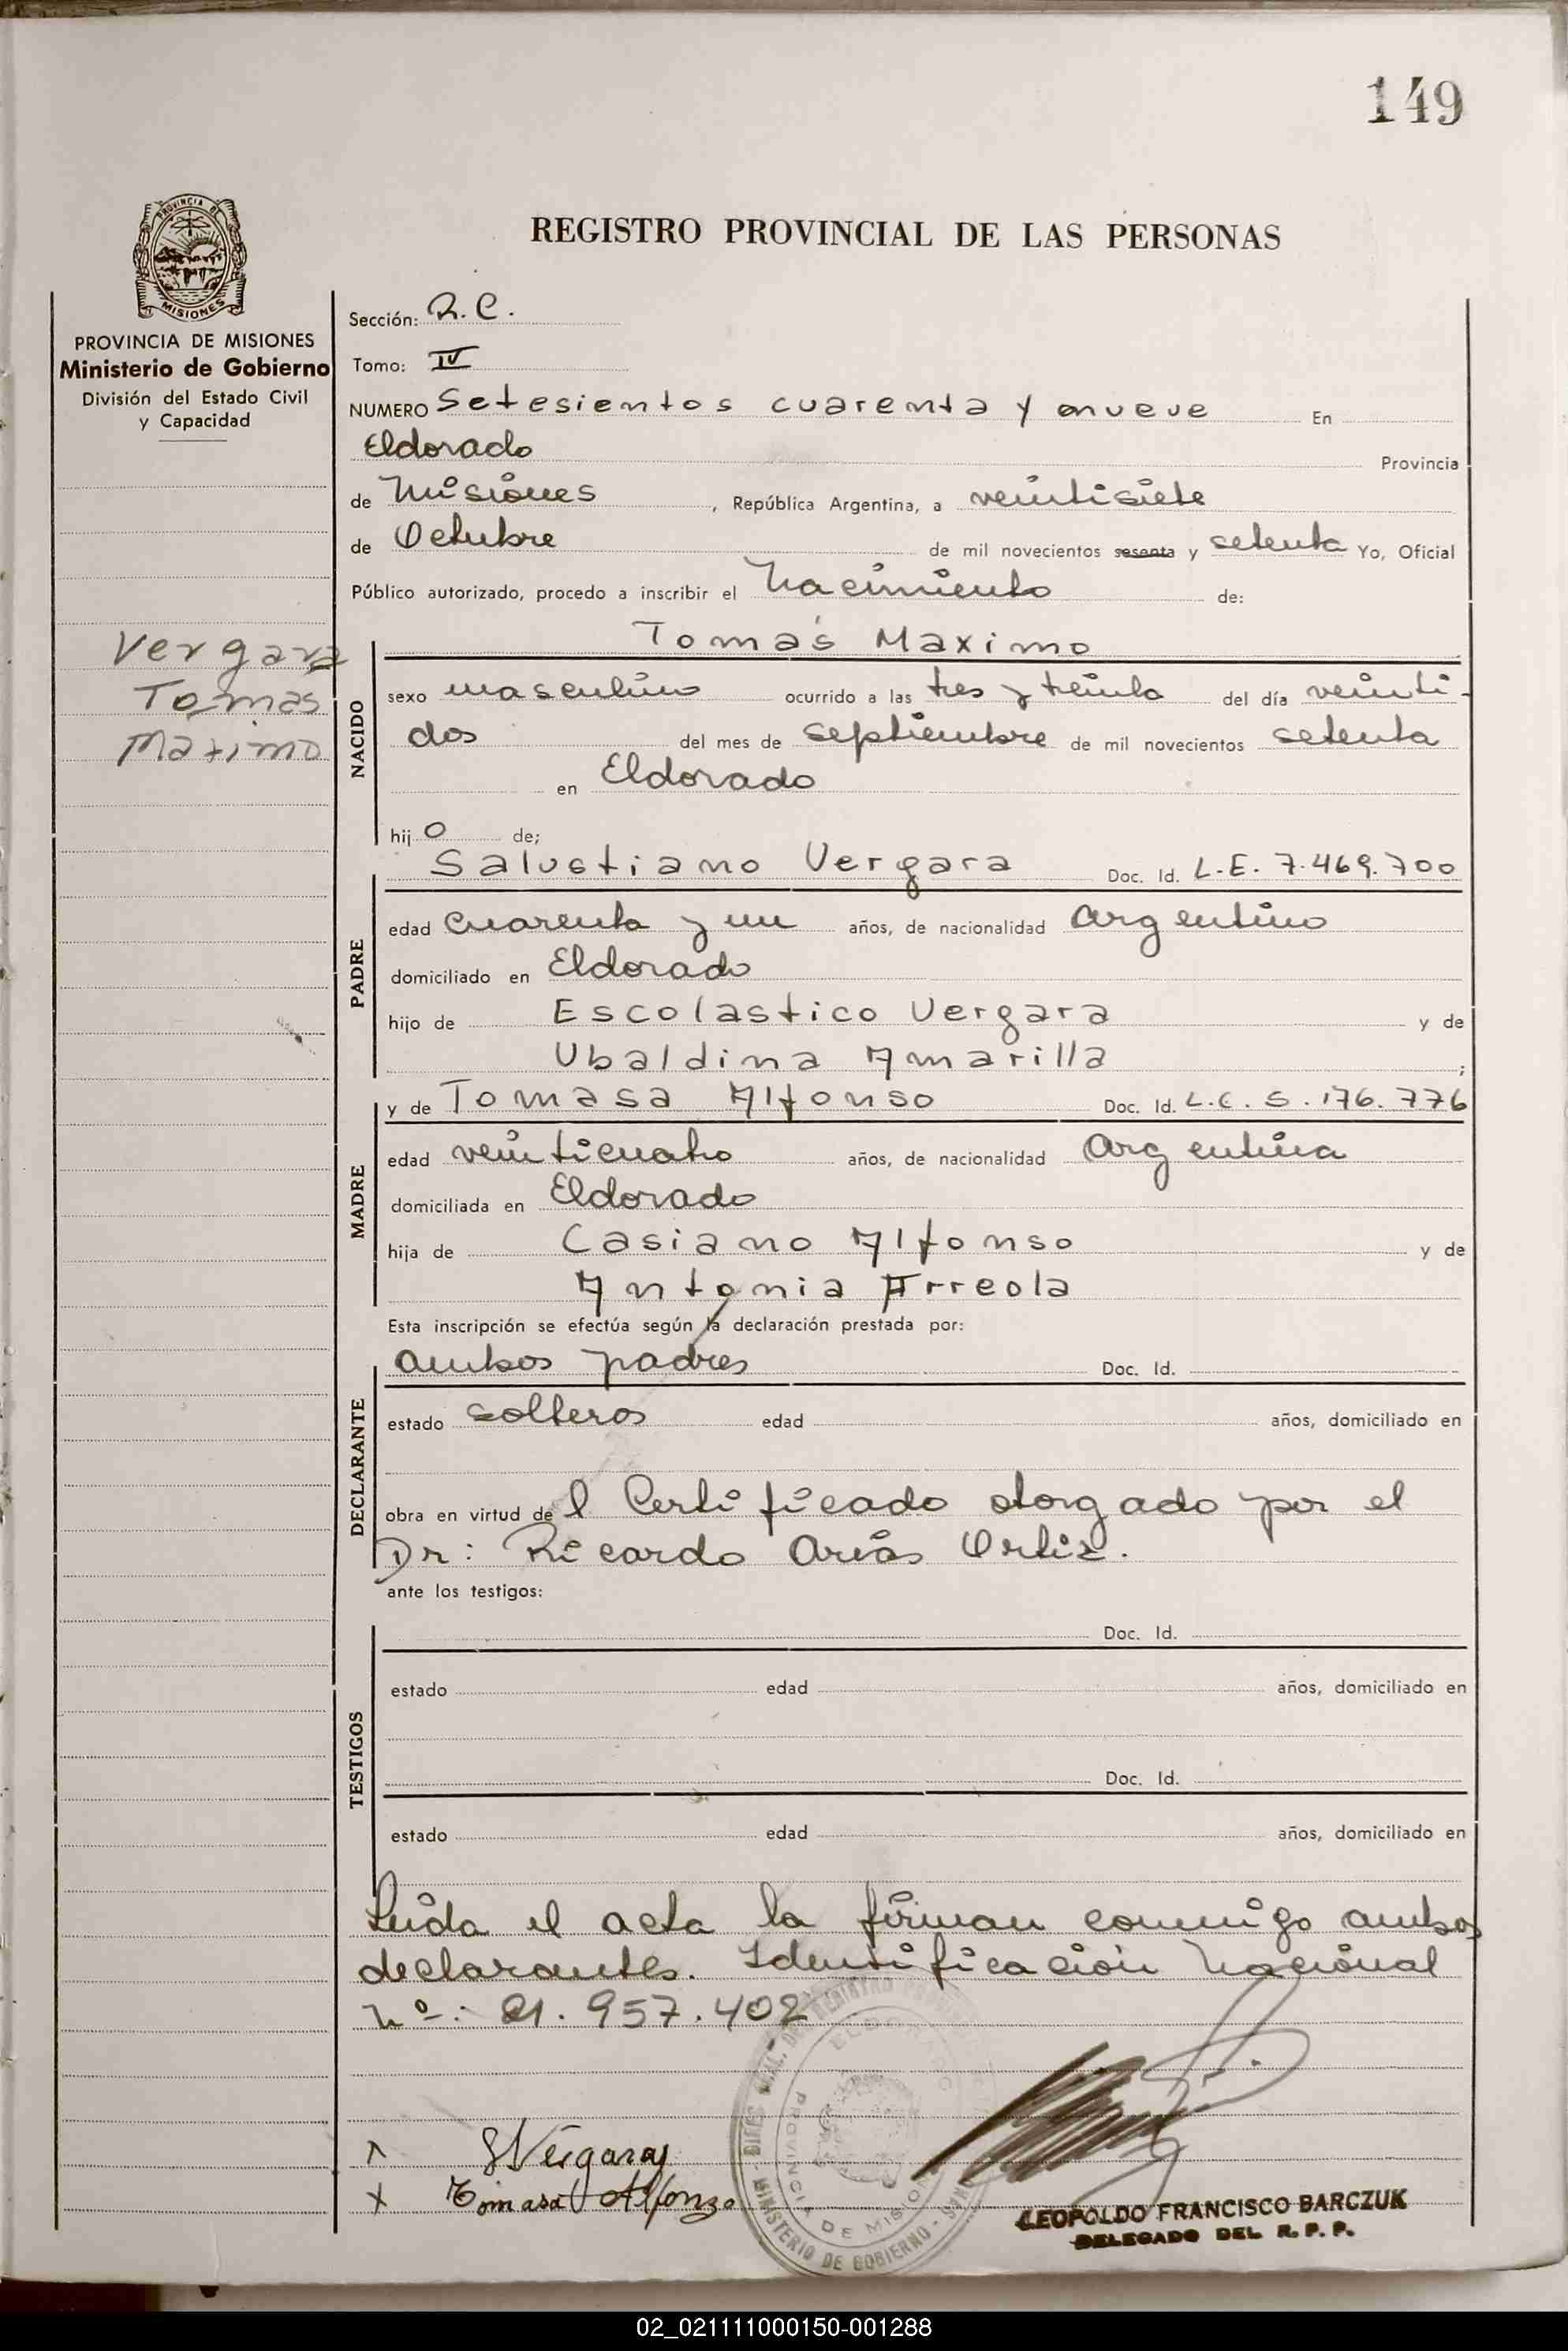 149
REGISTRO PROVINCIAL DE LAS PERSONAS
PROVINCIA DE MISIONES
PROVINCIA DE MISIONES
Ministerio de Gobierno
División del Estado Civil
y Capacidad
Vergara
Tomas
Maximo
Sección: R.C.
Tomo: IV
NUMERO Setesientos cuarenta y nueve En
Eldorado Provincia
de Misiones, República Argentina, a veintisiete
de Octubre de mil novecientos sesenta y setenta Yo, Oficial
Público autorizado, procedo a inscribir el Nacimiento de:
NACIDO
Tomás Maximo
sexo masculino ocurrido a las tres y treinta del día veinti-
dos del mes de septiembre de mil novecientos setenta
en Eldorado
hijo de;
PADRE
Salustiano Vergara Doc. Id. L.E. 7.469.700
edad cuarenta y un años, de nacionalidad Argentino
domiciliado en Eldorado
hijo de Escolastico Vergara y de
Ubaldina Amarilla;
MADRE
y de Tomasa Alfonso Doc. Id. L.C. 5.176.776
edad veinticuatro años, de nacionalidad Argentina
domiciliada en Eldorado
hija de Casiano Alfonso y de
Antonia Arreola
Esta inscripción se efectúa según la declaración prestada por:
DECLARANTE
ambos padres Doc. Id.
estado solteros edad años, domiciliado en
obra en virtud del Certificado otorgado por el
Dr: Ricardo Arias Ortiz.
ante los testigos:
TESTIGOS
Doc. Id.
estado edad años, domiciliado en
Doc. Id.
estado edad años, domiciliado en
Leida el acta la firman conmigo ambos
declarantes. Identificación Nacional
Nº: 21.957.402
x SVergara
x Tomasa Alfonzo
ELDORADO
PROVINCIA DE MISIONES
MINISTERIO DE GOBIERNO
LEOPOLDO FRANCISCO BARCZUK
DELEGADO DEL R. P. P.
02_021111000150-001288